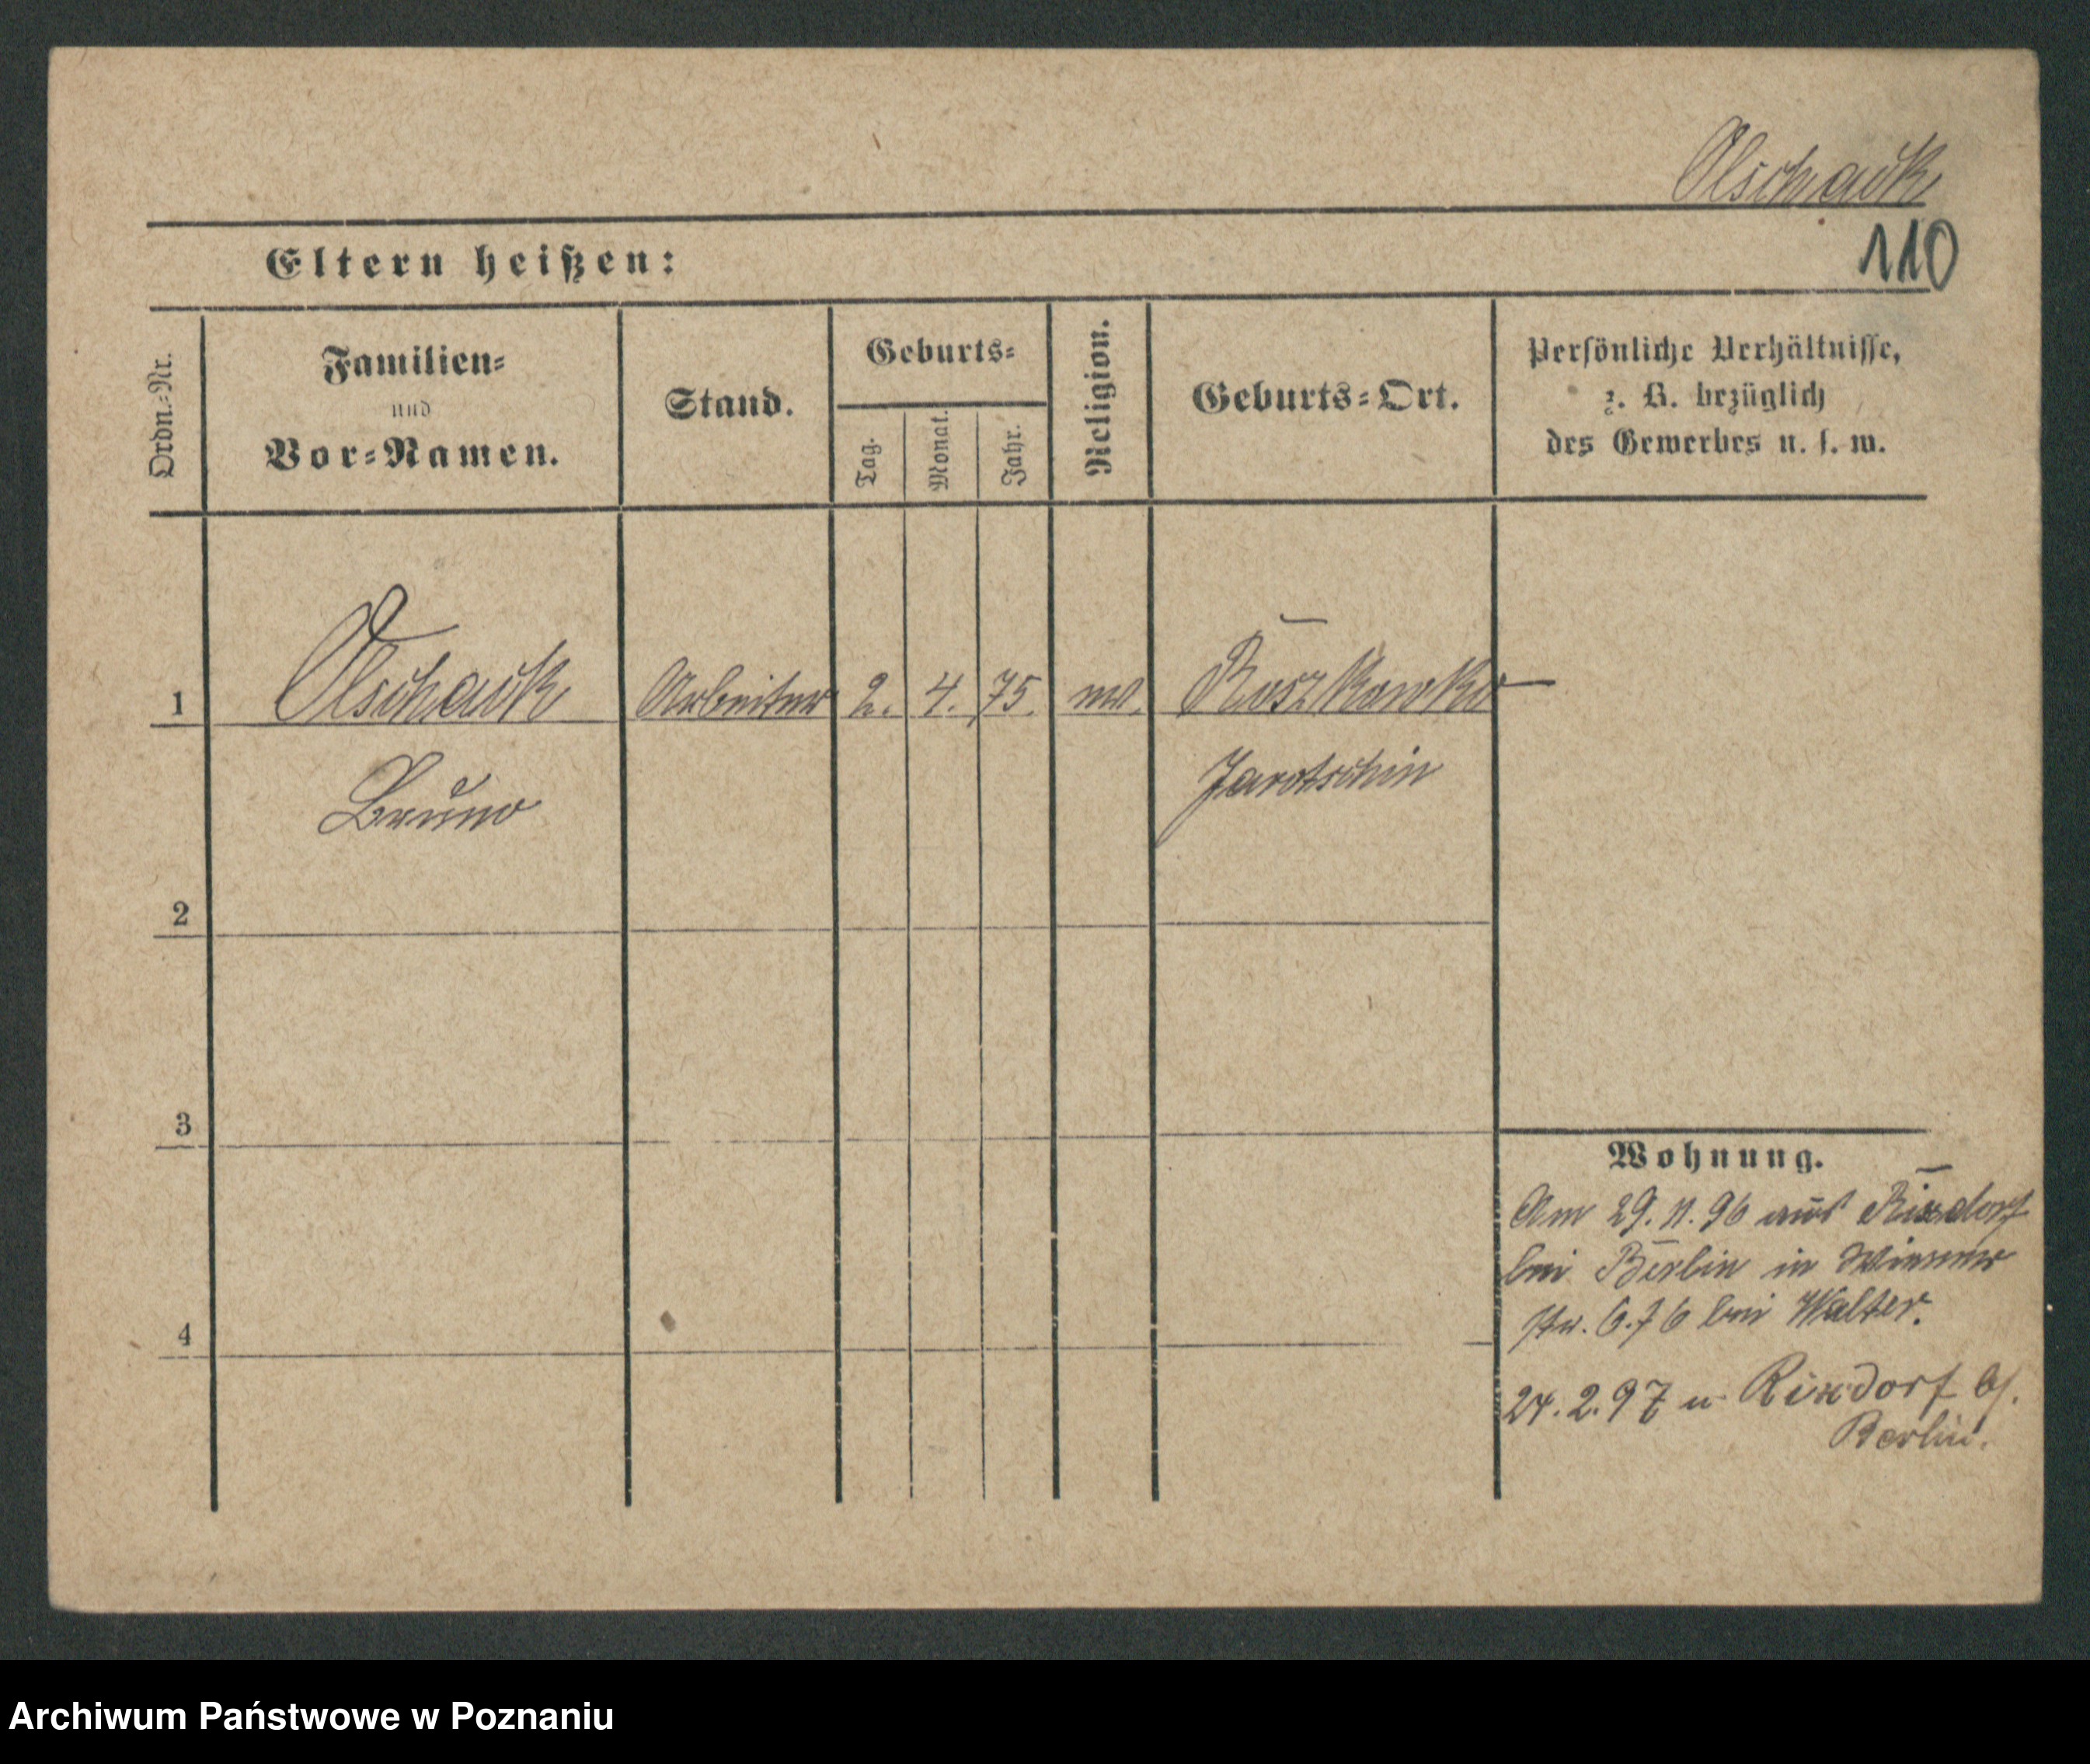 Olschauk
110
Eltern heißen:
Ordn.-Nr.
Familien-
und
Vor-Namen.
Stand.
Geburts-
Tag.
Monat.
Jahr.
Religion.
Geburts-Ort.
Persönliche Verhältnisse,
z. B. bezüglich
des Gewerbes u. s. w.
1 Olschauk Arbeiter 2. 4. 75. ev.
Bruno Jarotschin
2
3
4
Wohnung.
Am 29. 11. 96 aus Rixdorf
bei Berlin in
bei Walter.
24. 2. 97 n Rixdorf b/.
Berlin.
Archiwum Państwowe w Poznaniu